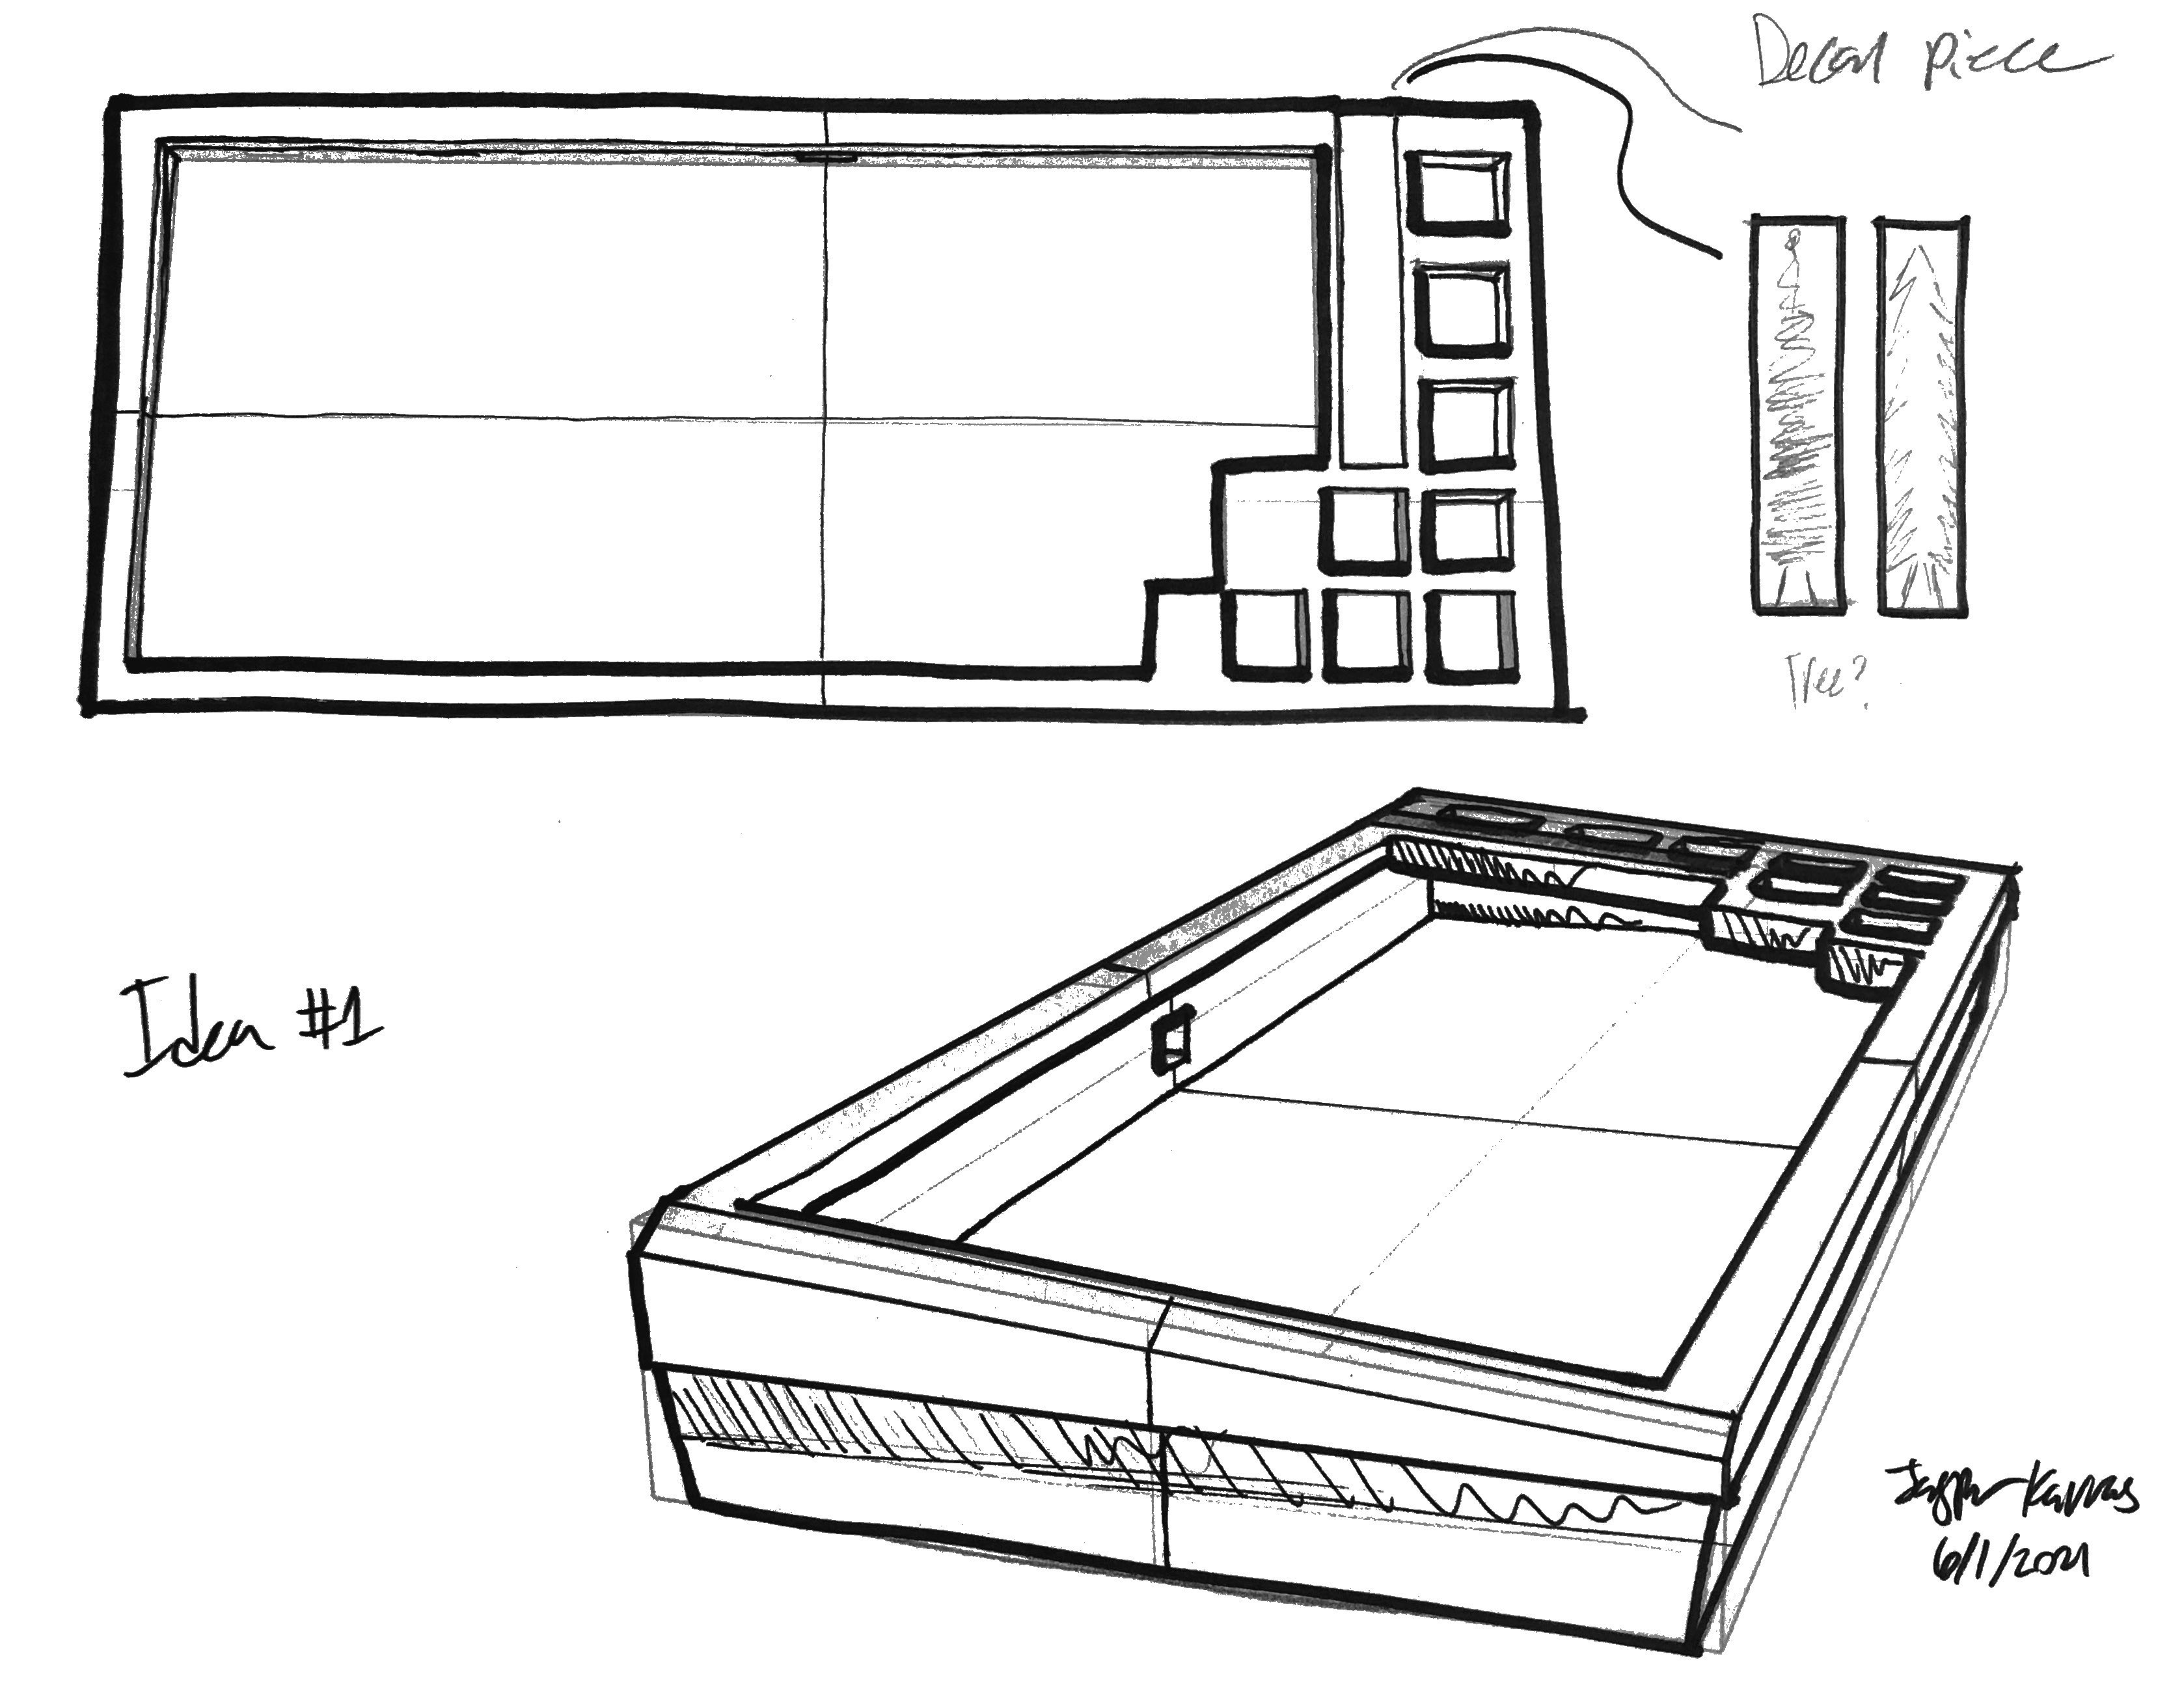 Decal piece
Tree?
Idea #1
Karras
6/1/2021